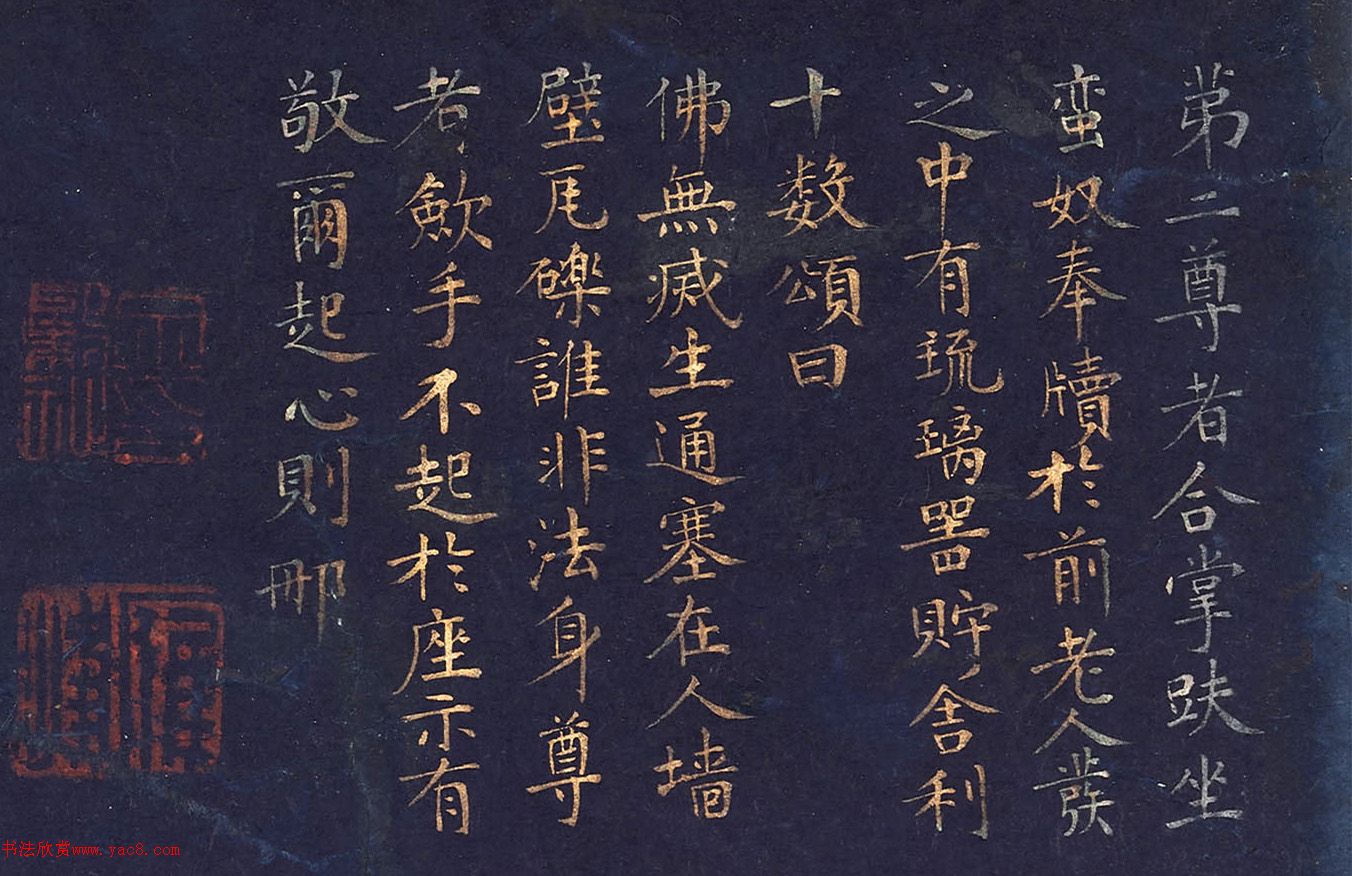 苐二尊者合掌趺坐
蛮奴奉牘於前老人發
之中有琉璃器貯舍利
十数頌曰
佛無㓕生通塞在人墙
壁瓦礫誰非法身尊
者歛手不起於座示有
敬爾起心則那
书法欣赏www.yac8.com